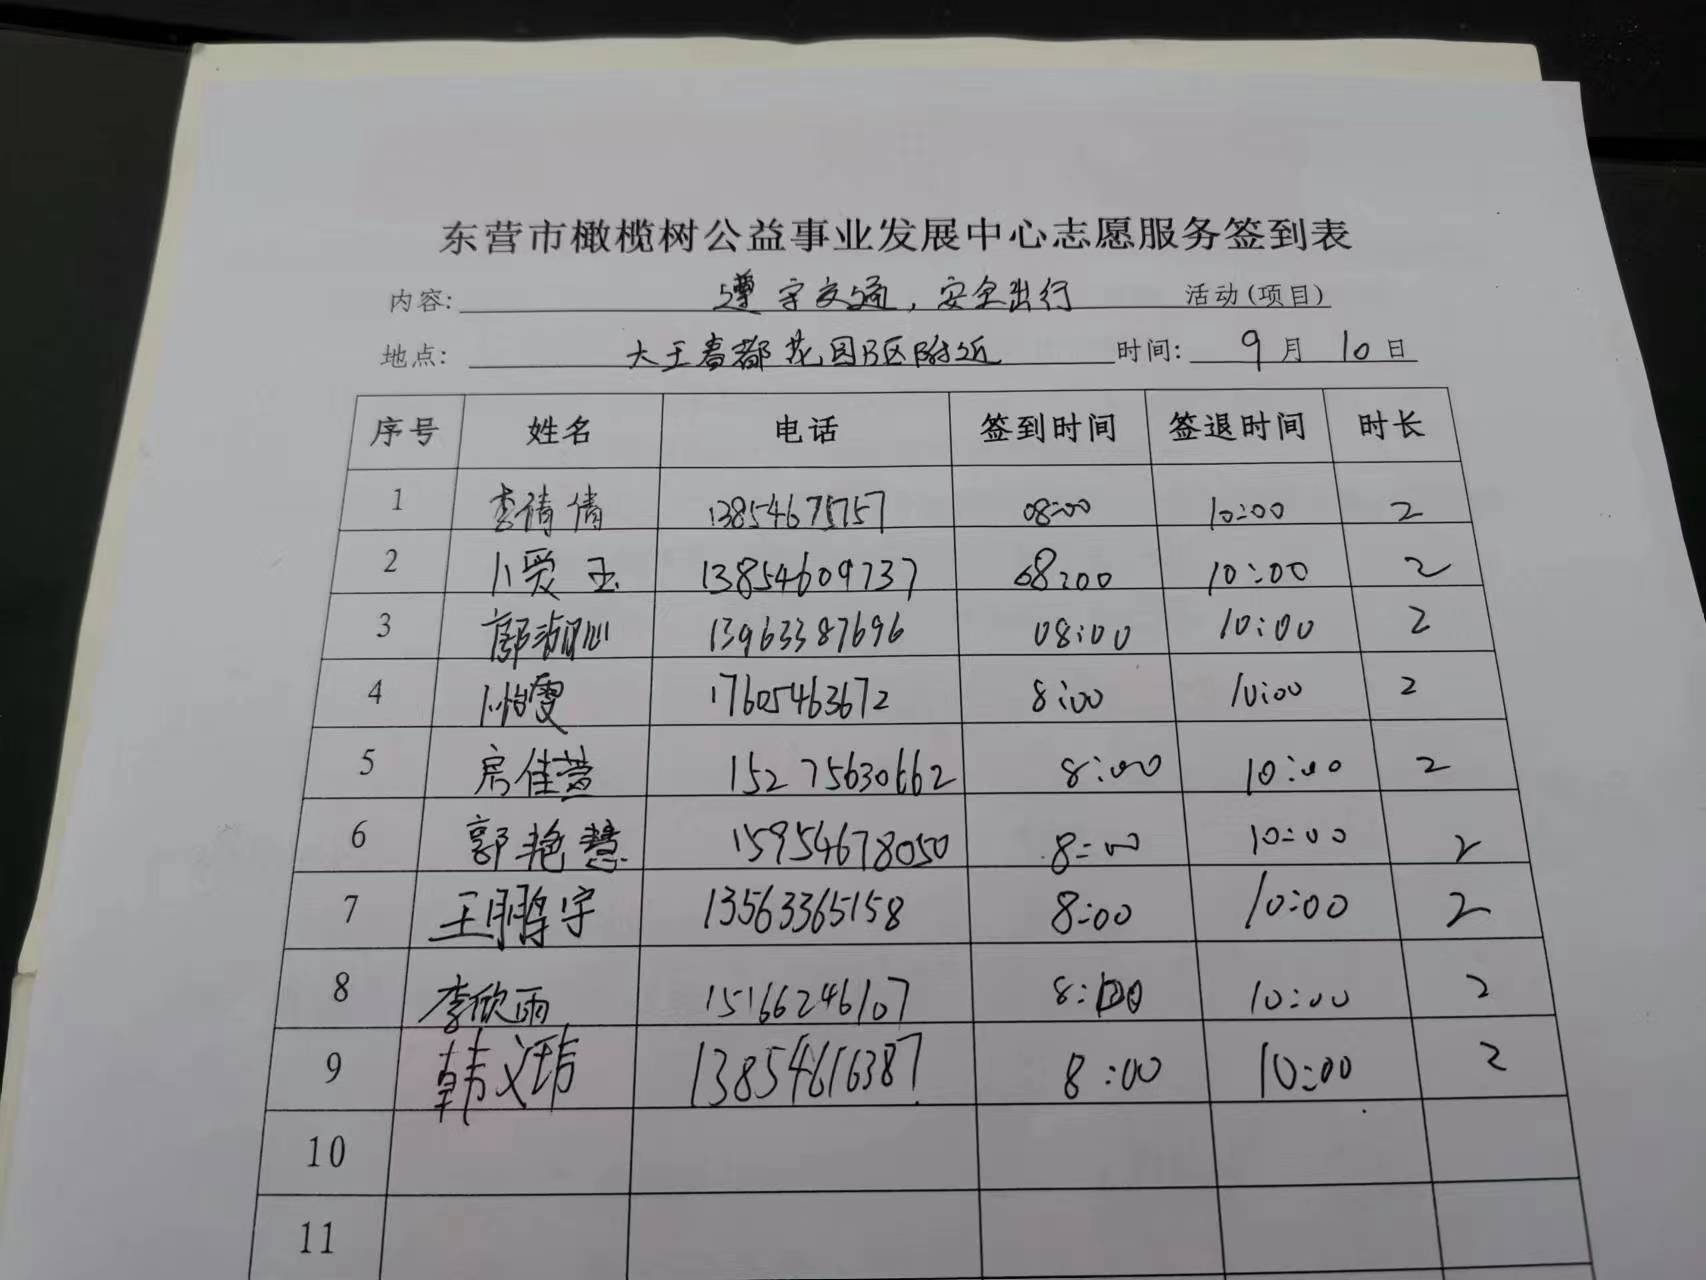 东营市橄榄树公益事业发展中心志愿服务签到表
内容: 遵守交通,安全出行 活动(项目)
地点: 大王春都花园B区附近 时间: 9月10日
序号 姓名 电话 签到时间 签退时间 时长
1 李倩倩 13854675757 08:00 10:00 2
2 卜爱玉 13854609737 08:00 10:00 2
3 郭淑心 13963387696 08:00 10:00 2
4 17605463672 8:00 10:00 2
5 房佳萱 15275630662 8:00 10:00 2
6 郭艳慧 15954678050 8:00 10:00 2
7 王鹏宇 13563365158 8:00 10:00 2
8 李欣雨 15166246107 8:00 10:00 2
9 韩义玮 13854616387 8:00 10:00 2
10
11